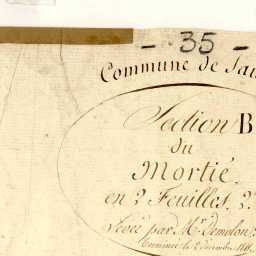 - 35 -
Commune de Sau
Section B
du
Mortié.
en 2 Feuilles. 2.
Levée par Mr. Demolon,
Terminée le 2 décembre